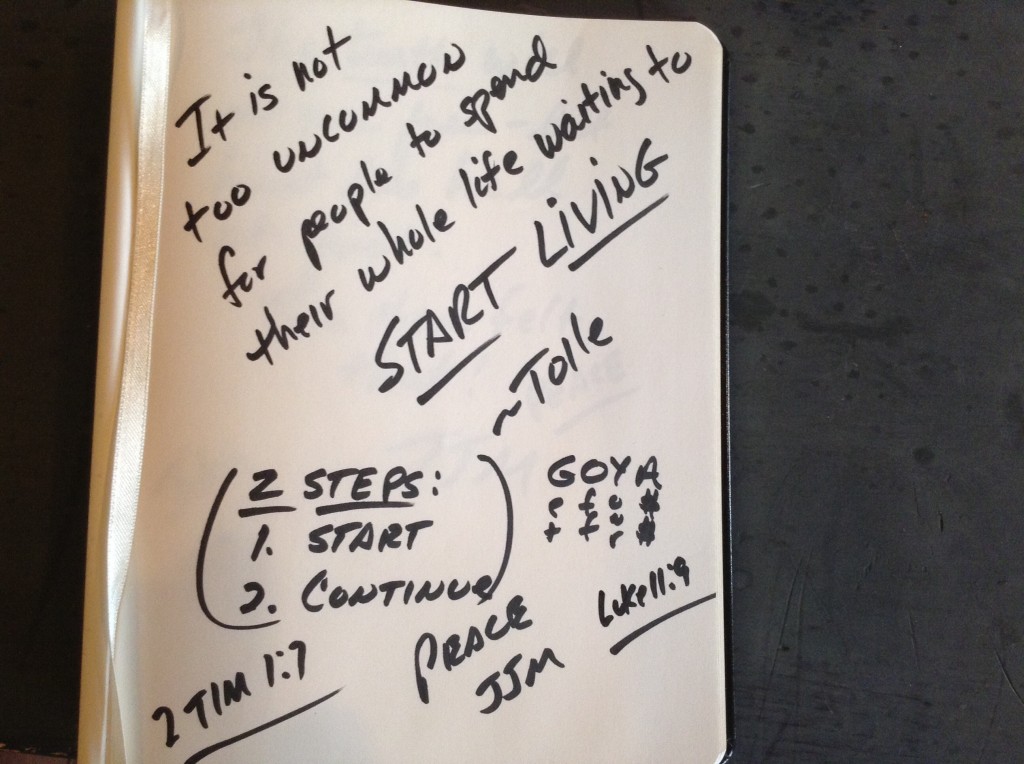 It is not
too UNCOMMON
for people to spend
their whole life waiting to
START LIVING
~Tolle
(2 STEPS:
1. START
2. CONTINUE)
GOYA
e f o #
t f u #
r
Luke 11:9
PEACE
JJM
2 TIM 1:7